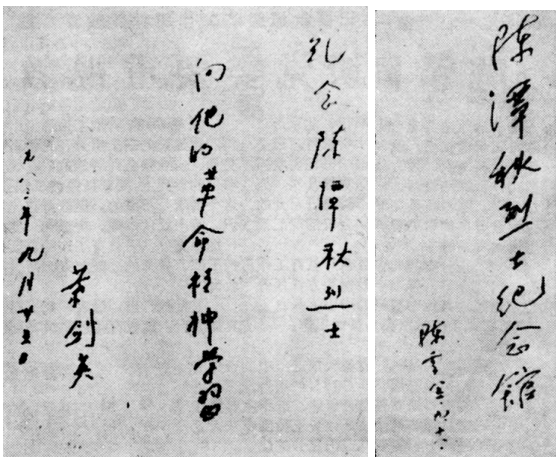 陈潭秋烈士纪念馆
陈云
纪念陈潭秋烈士
向他的革命精神学习
葉剑英
年九月廿五日